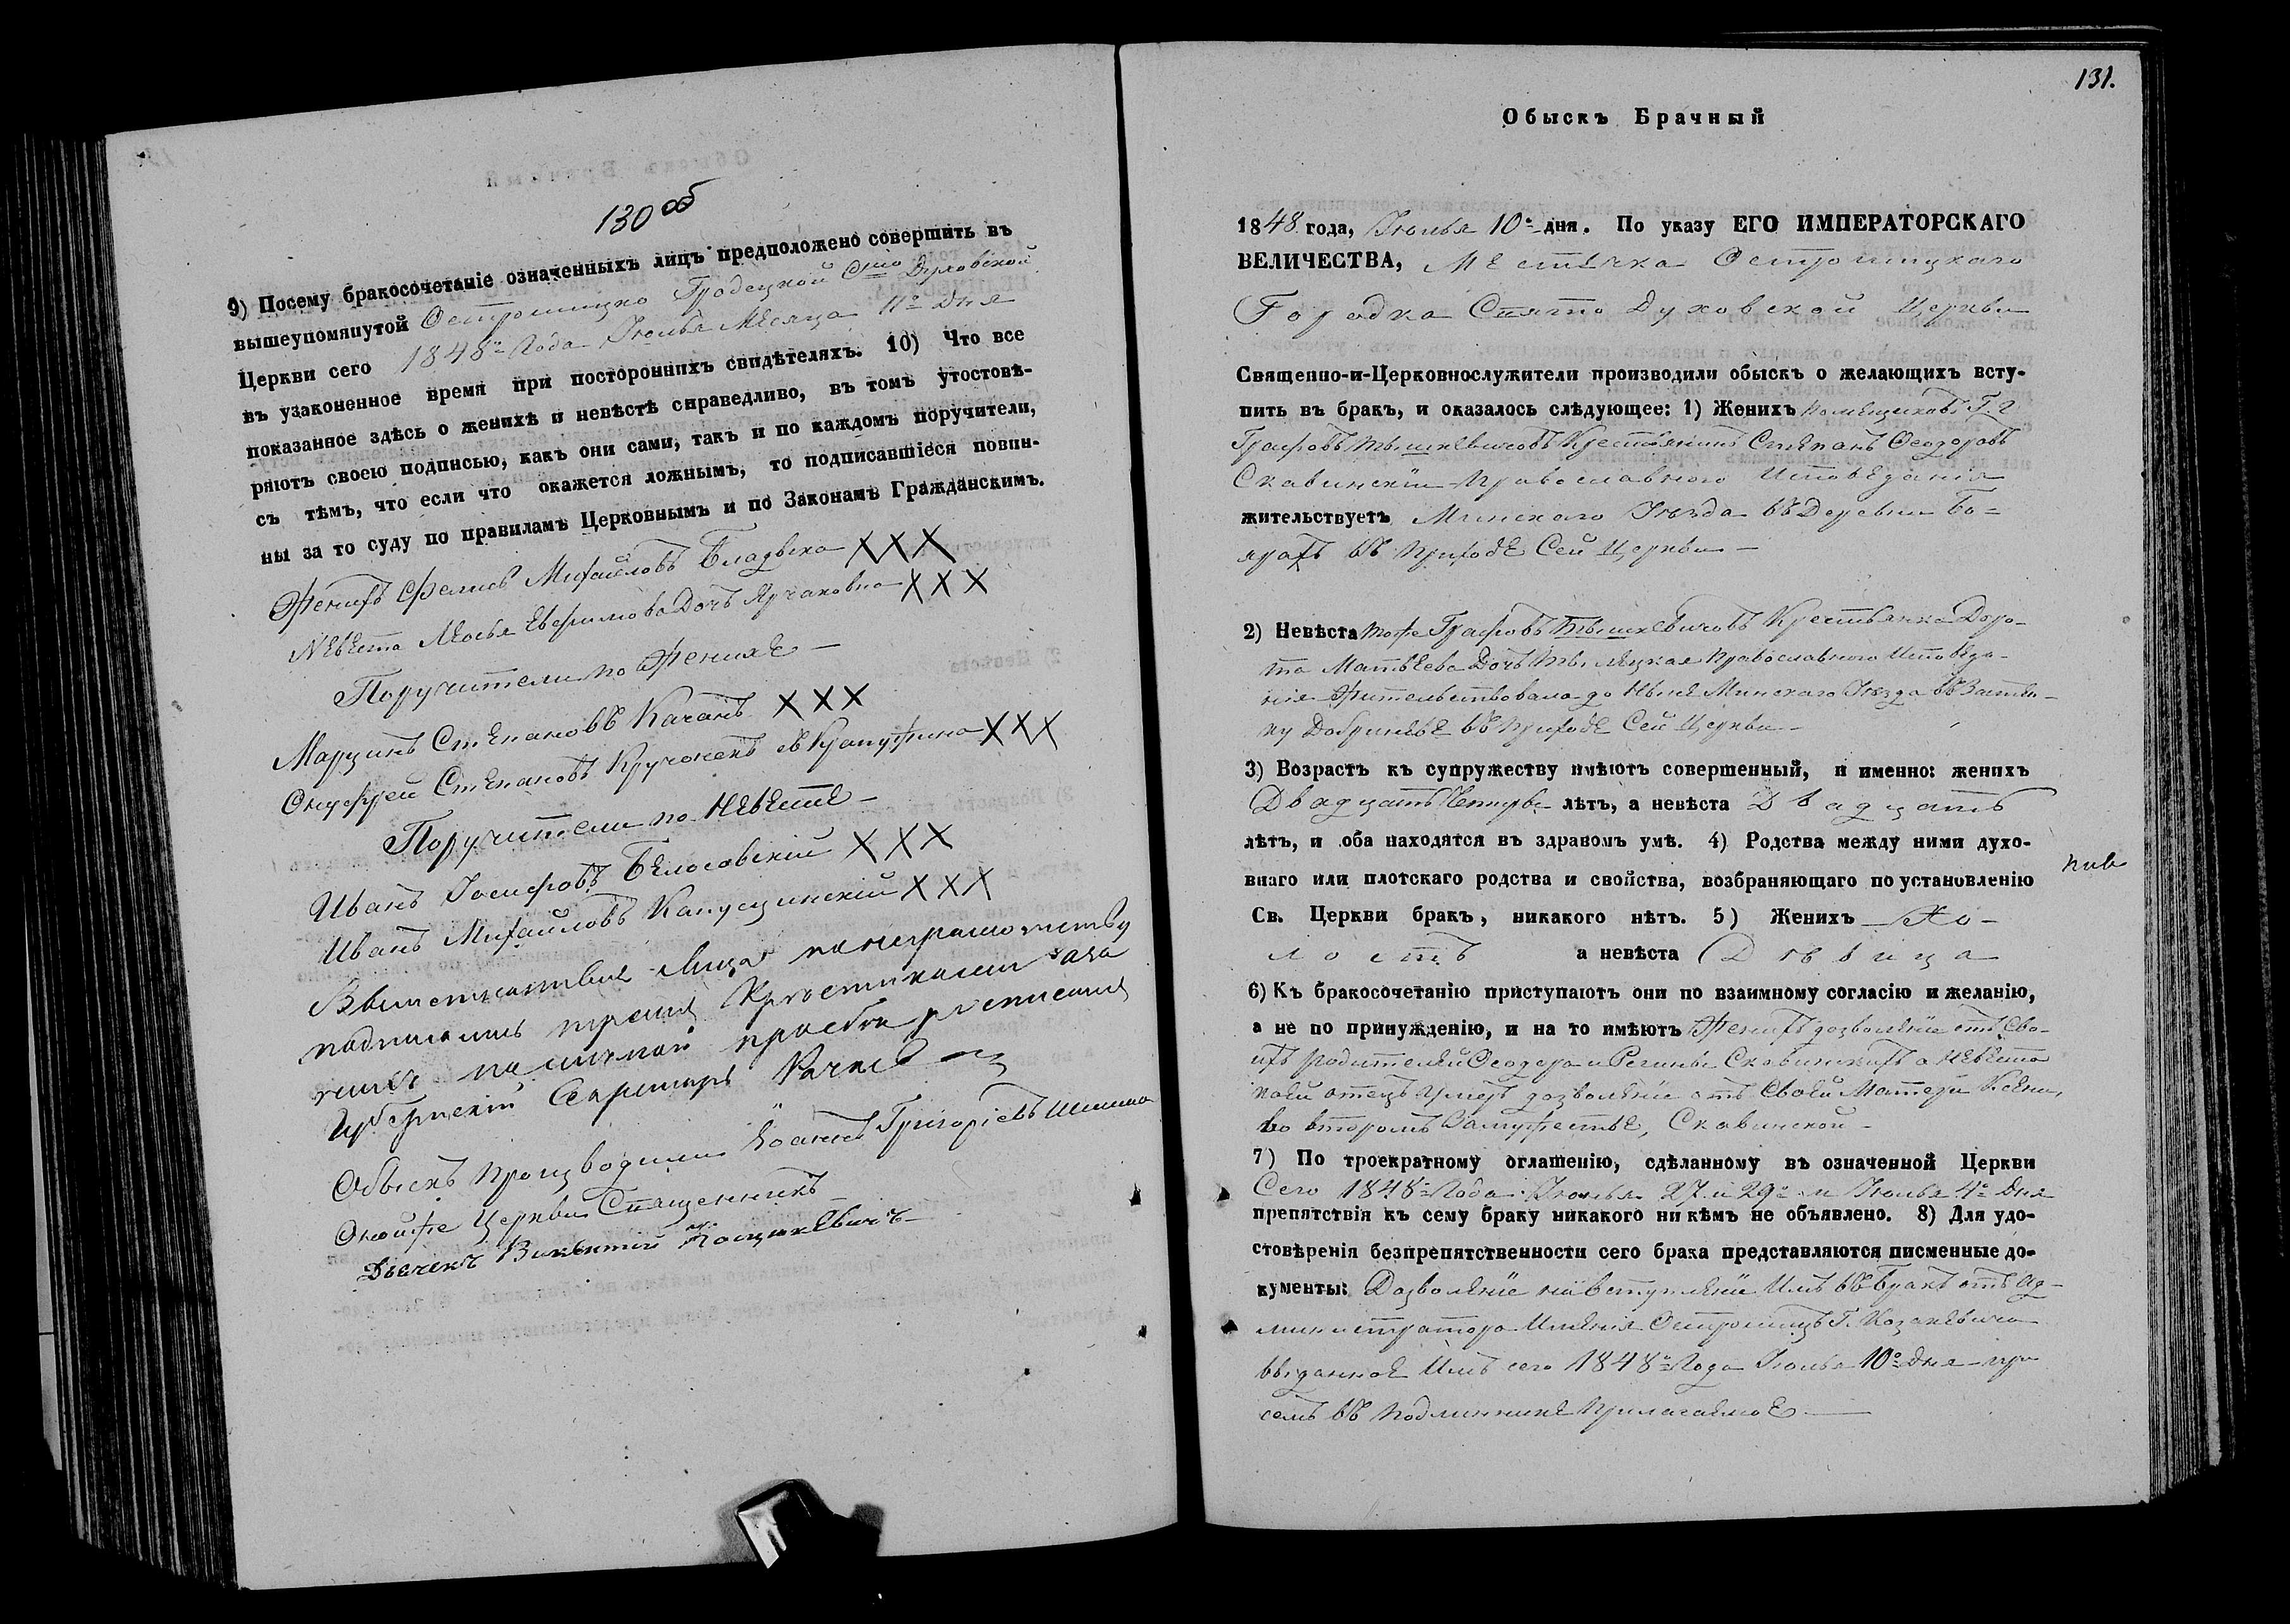 130 об
9) Посему бракосочетаніе означенныхъ лицъ предположено совершить въ
вышеупомянутой Остромицко Гродецкой Свято Духовской
Церкви сего 1848го Года Июлья Месяца 11го Дня
въ узаконенное время при постороннихъ свидѣтеляхъ. 10) Что все
показанное здѣсь о женихѣ и невѣстѣ справедливо, въ томъ утостовѣ-
ряютъ своею подписью, какъ они сами, такъ и по каждомъ поручители,
съ тѣмъ, что если что окажется ложнымъ, то подписавшіеся повин-
ны за то суду по правиламъ Церковнымъ и по Законамъ Гражданскимъ.
Женихъ Михайловъ XXX
Невѣста Ефимова Дочь XXX
Поручители по Женихе
Марцинъ Степановъ Качанъ XXX
Онуфрей Степановъ XXX
Поручители по Невесте
Иванъ Іосифовъ Белосовскій XXX
Иванъ Михайловъ Капусцинскій XXX
лица по неграмотству
подписались тремя Крестиками а за
ихъ просьбы росписался
Губернскій Секретарь
Обыскъ Производили Іоаннъ Григоріевъ
Оной же Церкви Священникъ
Дьячекъ Викентій
131.
Обыскъ Брачный
1848 года, Июлья 10го дня. По указу ЕГО ИМПЕРАТОРСКАГО
ВЕЛИЧЕСТВА, Местечка Остромицкаго
Городка Свято Духовской Церкви
Священно-и-Церковнослужители производили обыскъ о желающихъ всту-
пить въ бракъ, и оказалось слѣдующее: 1) Женихъ помещиковъ Г. Г.
Графовъ Тышкевичовъ Крестьянинъ Степанъ Феодоровъ
Скавинскій Православного Исповеданія
жительствуетъ Минскаго Уезда въ Деревни Бо-
ярахъ въ Приходе Сей Церкви
2) Невѣста тоже Графовъ Тышкевичовъ Крестьянка Доро-
та Матвеева Дочь Православного Исповеда-
нія Жительствовала до Ныне Минскаго Уезда въ Застен-
ку Добриневе въ Приходе Сей Церкви
3) Возрастъ къ супружеству имѣютъ совершенный, и именно: женихъ
Двадцать Четыре лѣтъ, а невѣста Двадцать
лѣтъ, и оба находятся въ здравомъ умѣ. 4) Родства между ними духо-
внаго или плотскаго родства и свойства, возбраняющаго по установленію
Св. Церкви бракъ, никакого нѣтъ. 5) Женихъ Хо-
лостъ а невѣста Девица
6) Къ бракосочетанію приступаютъ они по взаимному согласію и желанію,
а не по принужденію, и на то имѣютъ Женихъ дозволеніе отъ Сво-
ихъ родителей Феодора и Регины Скавинскихъ а Невеста
коей отецъ умеръ дозволеніе отъ Своей Матери Ксени,
во второмъ Замужестве, Скавинской
7) По троекратному оглашенію, сдѣланному въ означенной Церкви
Сего 1848го Года Июнья 27 и 29го и Июлья 4го Дня
препятствія къ сему браку никакого ни кѣмъ не объявлено. 8) Для удо-
стовѣренія безпрепятственности сего брака представляются писменные до-
кументы: Дозволеніе на вступленіе Имъ въ бракъ отъ Ад-
министратора Именія Остромицъ Г. Козакевича
выданное Имъ сего 1848го Года Июлья 10го Дня при
семъ въ подлиннике прилагаемое